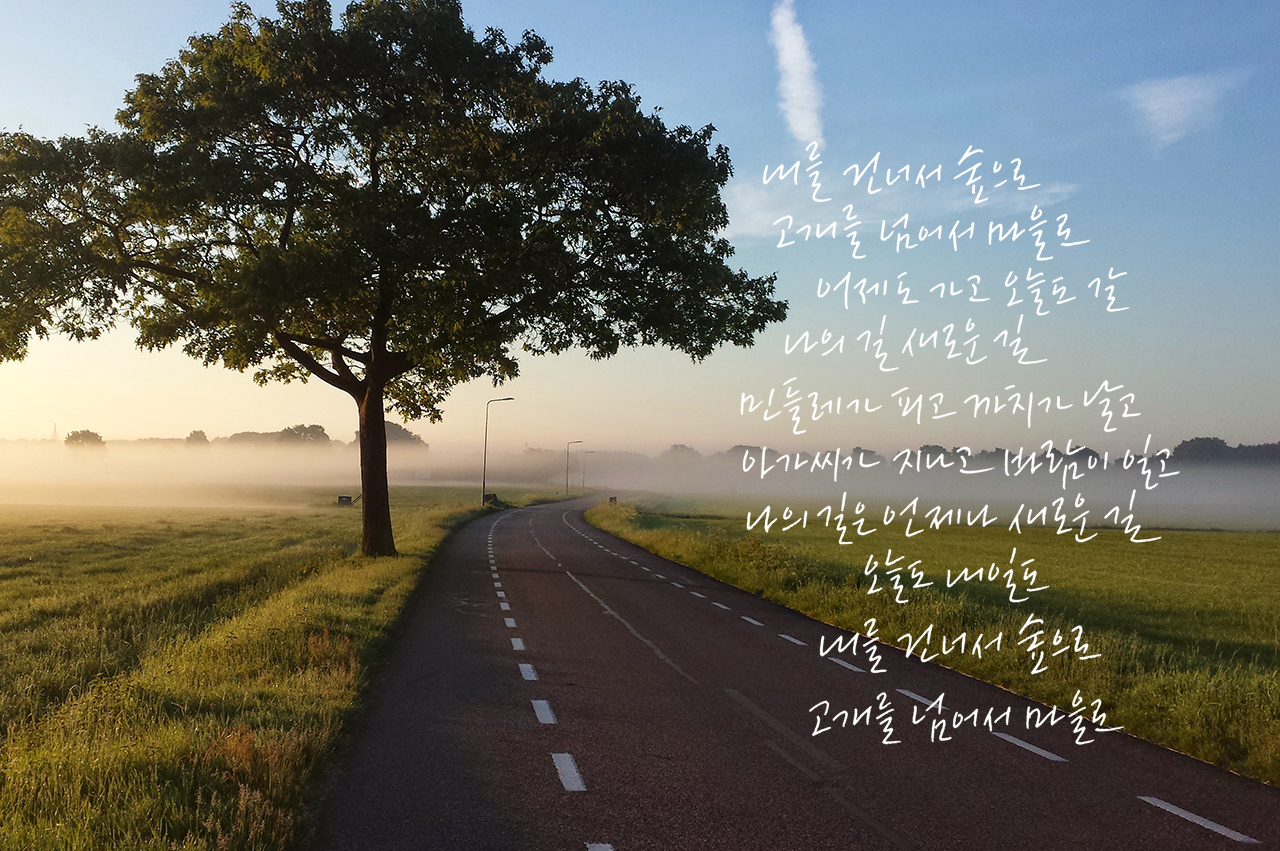 내를 건너서 숲으로
고개를 넘어서 마을로
어제도 가고 오늘도 갈
나의 길 새로운 길
민들레가 피고 까치가 날고
아가씨가 지나고 바람이 일고
나의 길은 언제나 새로운 길
오늘도 내일도
내를 건너서 숲으로
고개를 넘어서 마을로